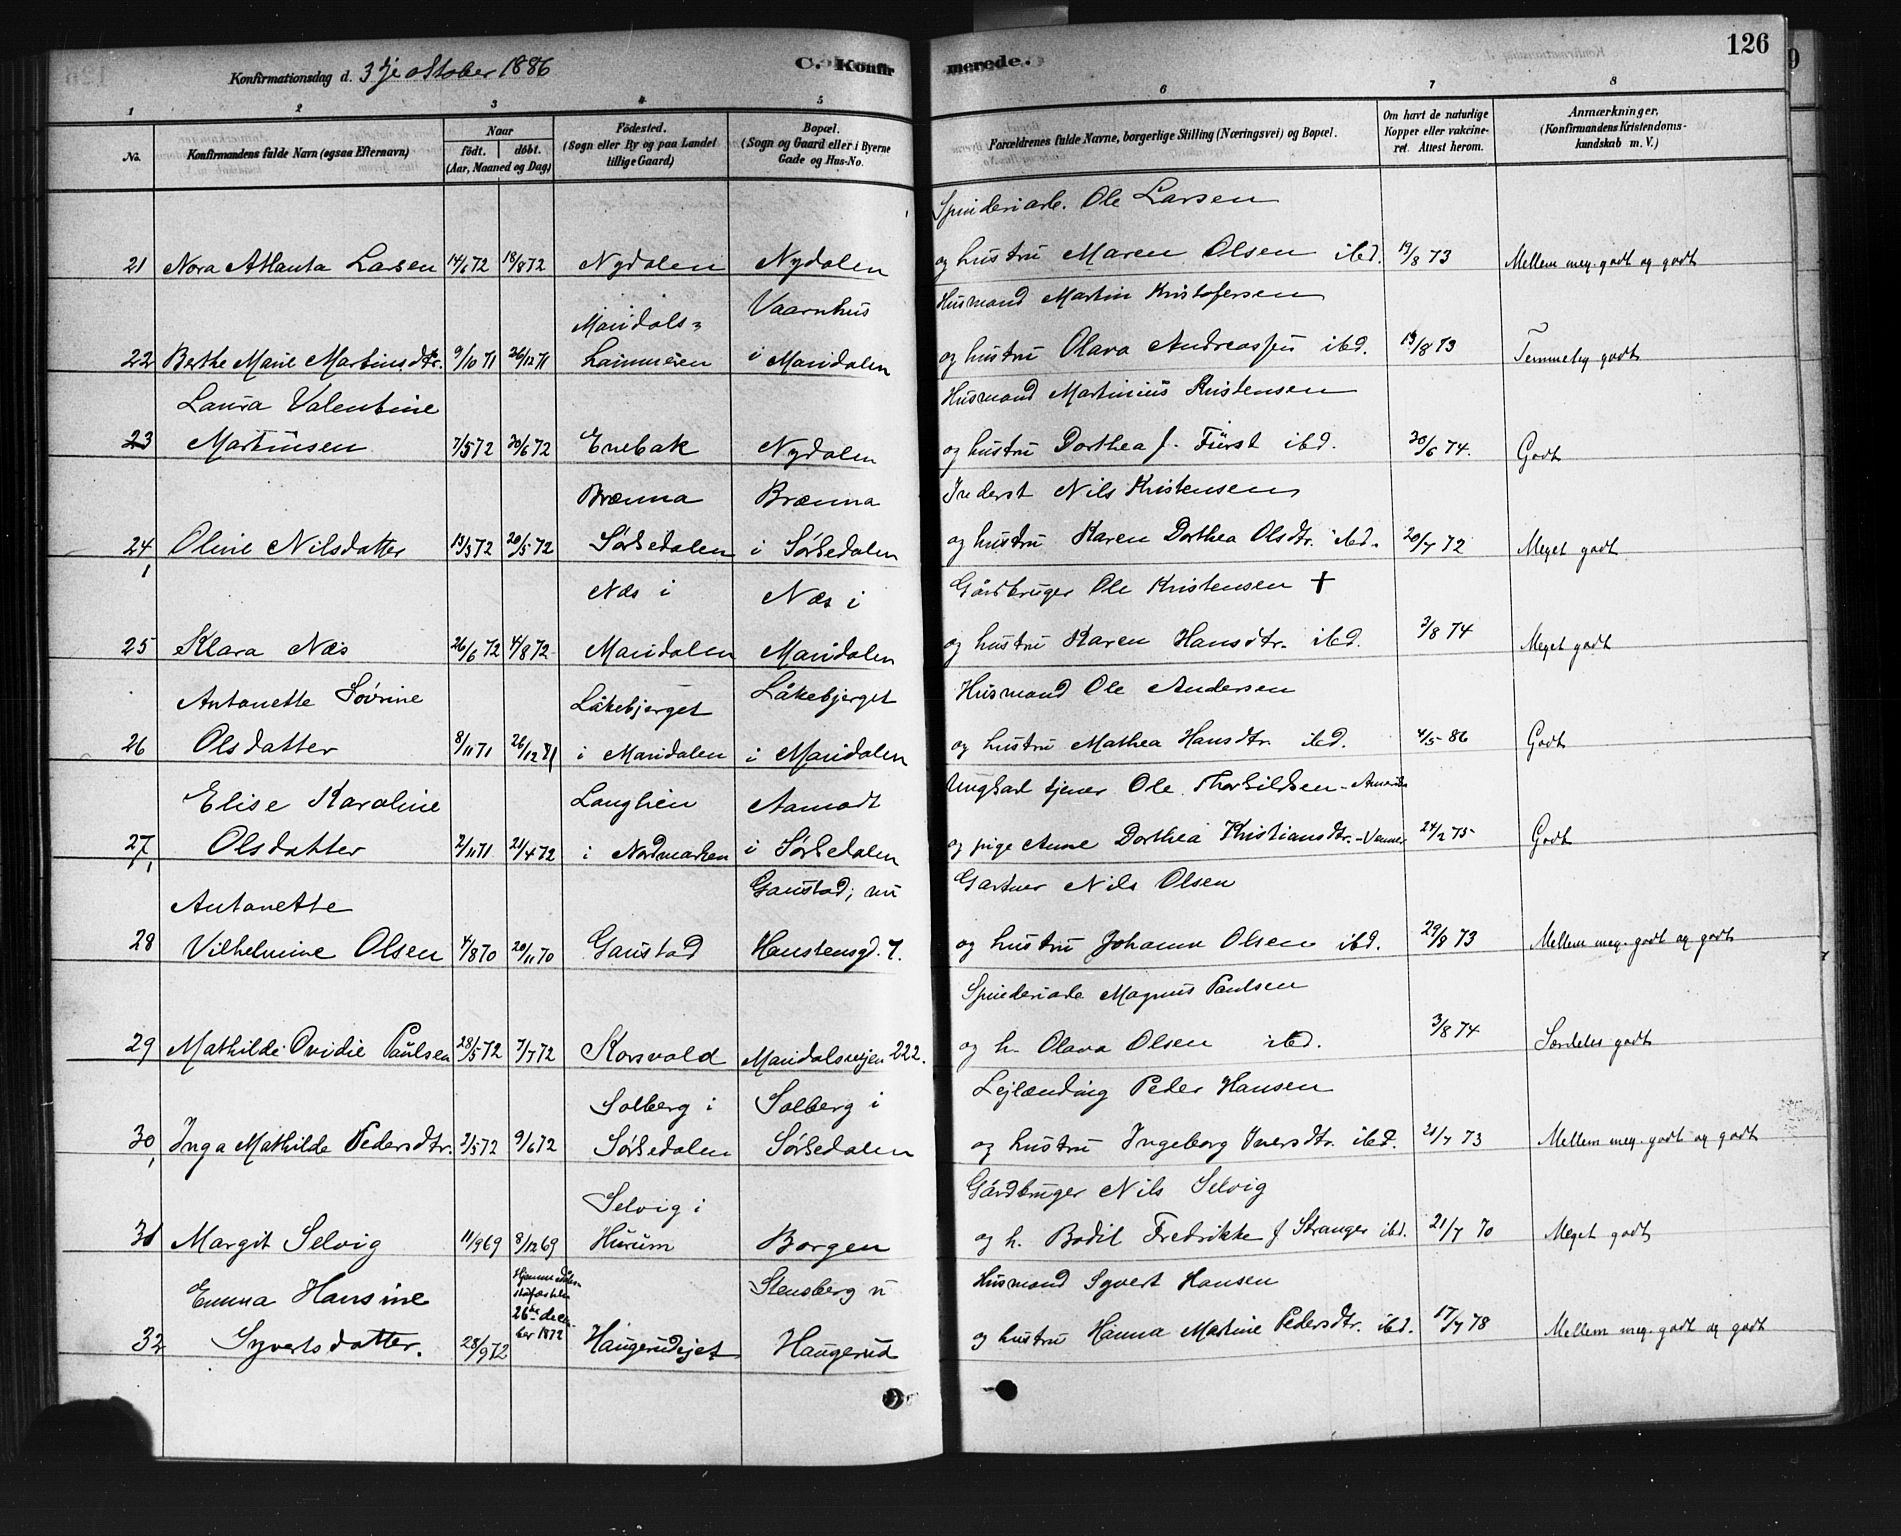 Konfirmationsdag d. 3dje oktober 1886
C. Konfirmerede. 126
1 2 3 4 5 6 7 8
No. Konfirmandens fulde Navn (ogsaa Efternavn) Naar födt. döbt. (Aar, Maaned og Dag) Födested. (Sogn eller By og paa Landet tillige Gaard) Bopæl. (Sogn og Gaard eller i Byerne Gade og Hus-No. Forældrenes fulde Navne, borgerlige Stilling (Næringsvei) og Bopæl. Om havt de naturlige Kopper eller vakcineret. Attest herom. Anmærkninger. (Konfirmandens Kristendomskundskab m. V.)
Spinderiarb. Ole Larsen
21 Nora Atlanta Larsen 14/6 72 18/8 72 Nydalen Nydalen og hustru Maren Olsen ibd. 19/8 73 Mellem meg. godt og godt
Maridals- Vaarnhus Husmand Martin Kristofersen
22 Berthe Marie Martinsdtr. 9/10 71 26/12 71 hammeren i Maridalen og hustru Olava Andreassen ibd. 19/8 73 Temmelig godt
Laura Valentine Husmand Martinius Kristensen
23 Martinsen 7/5 72 30/6 72 Enebak Nydalen og hustru Dorthea f. Fürst ibd. 30/6 74. Godt
Brænna Brænna Inderst Nils Kristensen
24 Oline Nilsdatter 13/3 72 20/5 72 Sørkedalen i Sørkedalen og hustru Karen Dorthea Olsdtr. ibd. 20/7 72 Meget godt
Næs i Næs i Gårdbruger Ole Kristensen +
25 Klara Næs 26/6 72 4/8 72 Maridalen Maridalen og hustru Karen Hansdtr. ibd. 3/8 74 Meget godt
Antonette Sovrine Låkebjerget Låkebjerget Husmand Ole Andersen
26 Olsdatter 8/11 71 26/12 71 i Maridalen i Maridalen og hustru Mathea Hansdtr. ibd. 4/5 86 Godt
Elise Karoline Langlien Aamodt Ungkarl tjener Ole Thorkildsen -
27 Olsdatter 2/11 71 21/4 72 i Nordmarken i Sørkedalen og pige Anne Dorthea Kristiansdtr. - 24/2 75 Godt
Antonette Gaustad, nu Gartner Nils Olsen
28 Vilhelmine Olsen 4/8 70 20/11 70 Gaustad Hanstensgd. 7. og hustru Johanne Olsen ibd. 29/8 73 Mellem meg. godt og godt
Spinderiarb Magnus Paulsen
29 Mathilde Ovidie Paulsen 28/5 72 7/7 72 Korsvold Maridalsveijen 222. og h. Olava Olsen ibd. 3/8 74 Særdeles godt
Solberg i Solberg i Lejlænding Peder Hansen
30 Inga Mathilde Pedersdtr. 2/5 72 9/6 72 Sørkedalen Sørkedalen og hustru Ingeborg Iversdtr. ibd. 21/7 73 Mellem meg. godt og godt
Selvig i Gårdbruger Nils Selvig
31 Margit Selvig 11/9 69 8/12 69 Hurum Borgen og h. Bodil Fredrikke f Stranger ibd. 21/7 70 Meget godt
Emma Hansine Hjemmedøbt 26de december 1872 Stensberg Husmand Syvert Hansen
32 Syvertsdatter. 28/9 72 Haugerudejet Haugerud og hustru Hanna Martine Pedersdtr. ibd. 17/7 78 Mellem meg. godt og godt